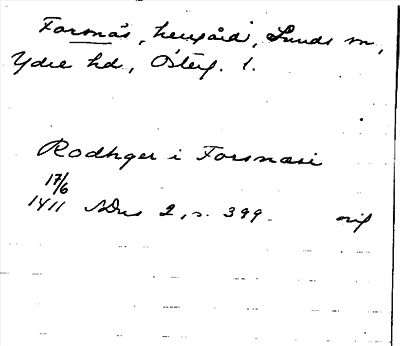 Forsnäs, herrgård, Sunds sn,
Ydre hd, Österg. l.
Rodhger i Forsnæsi
17/6
1411 SDns 2, s. 399. orig